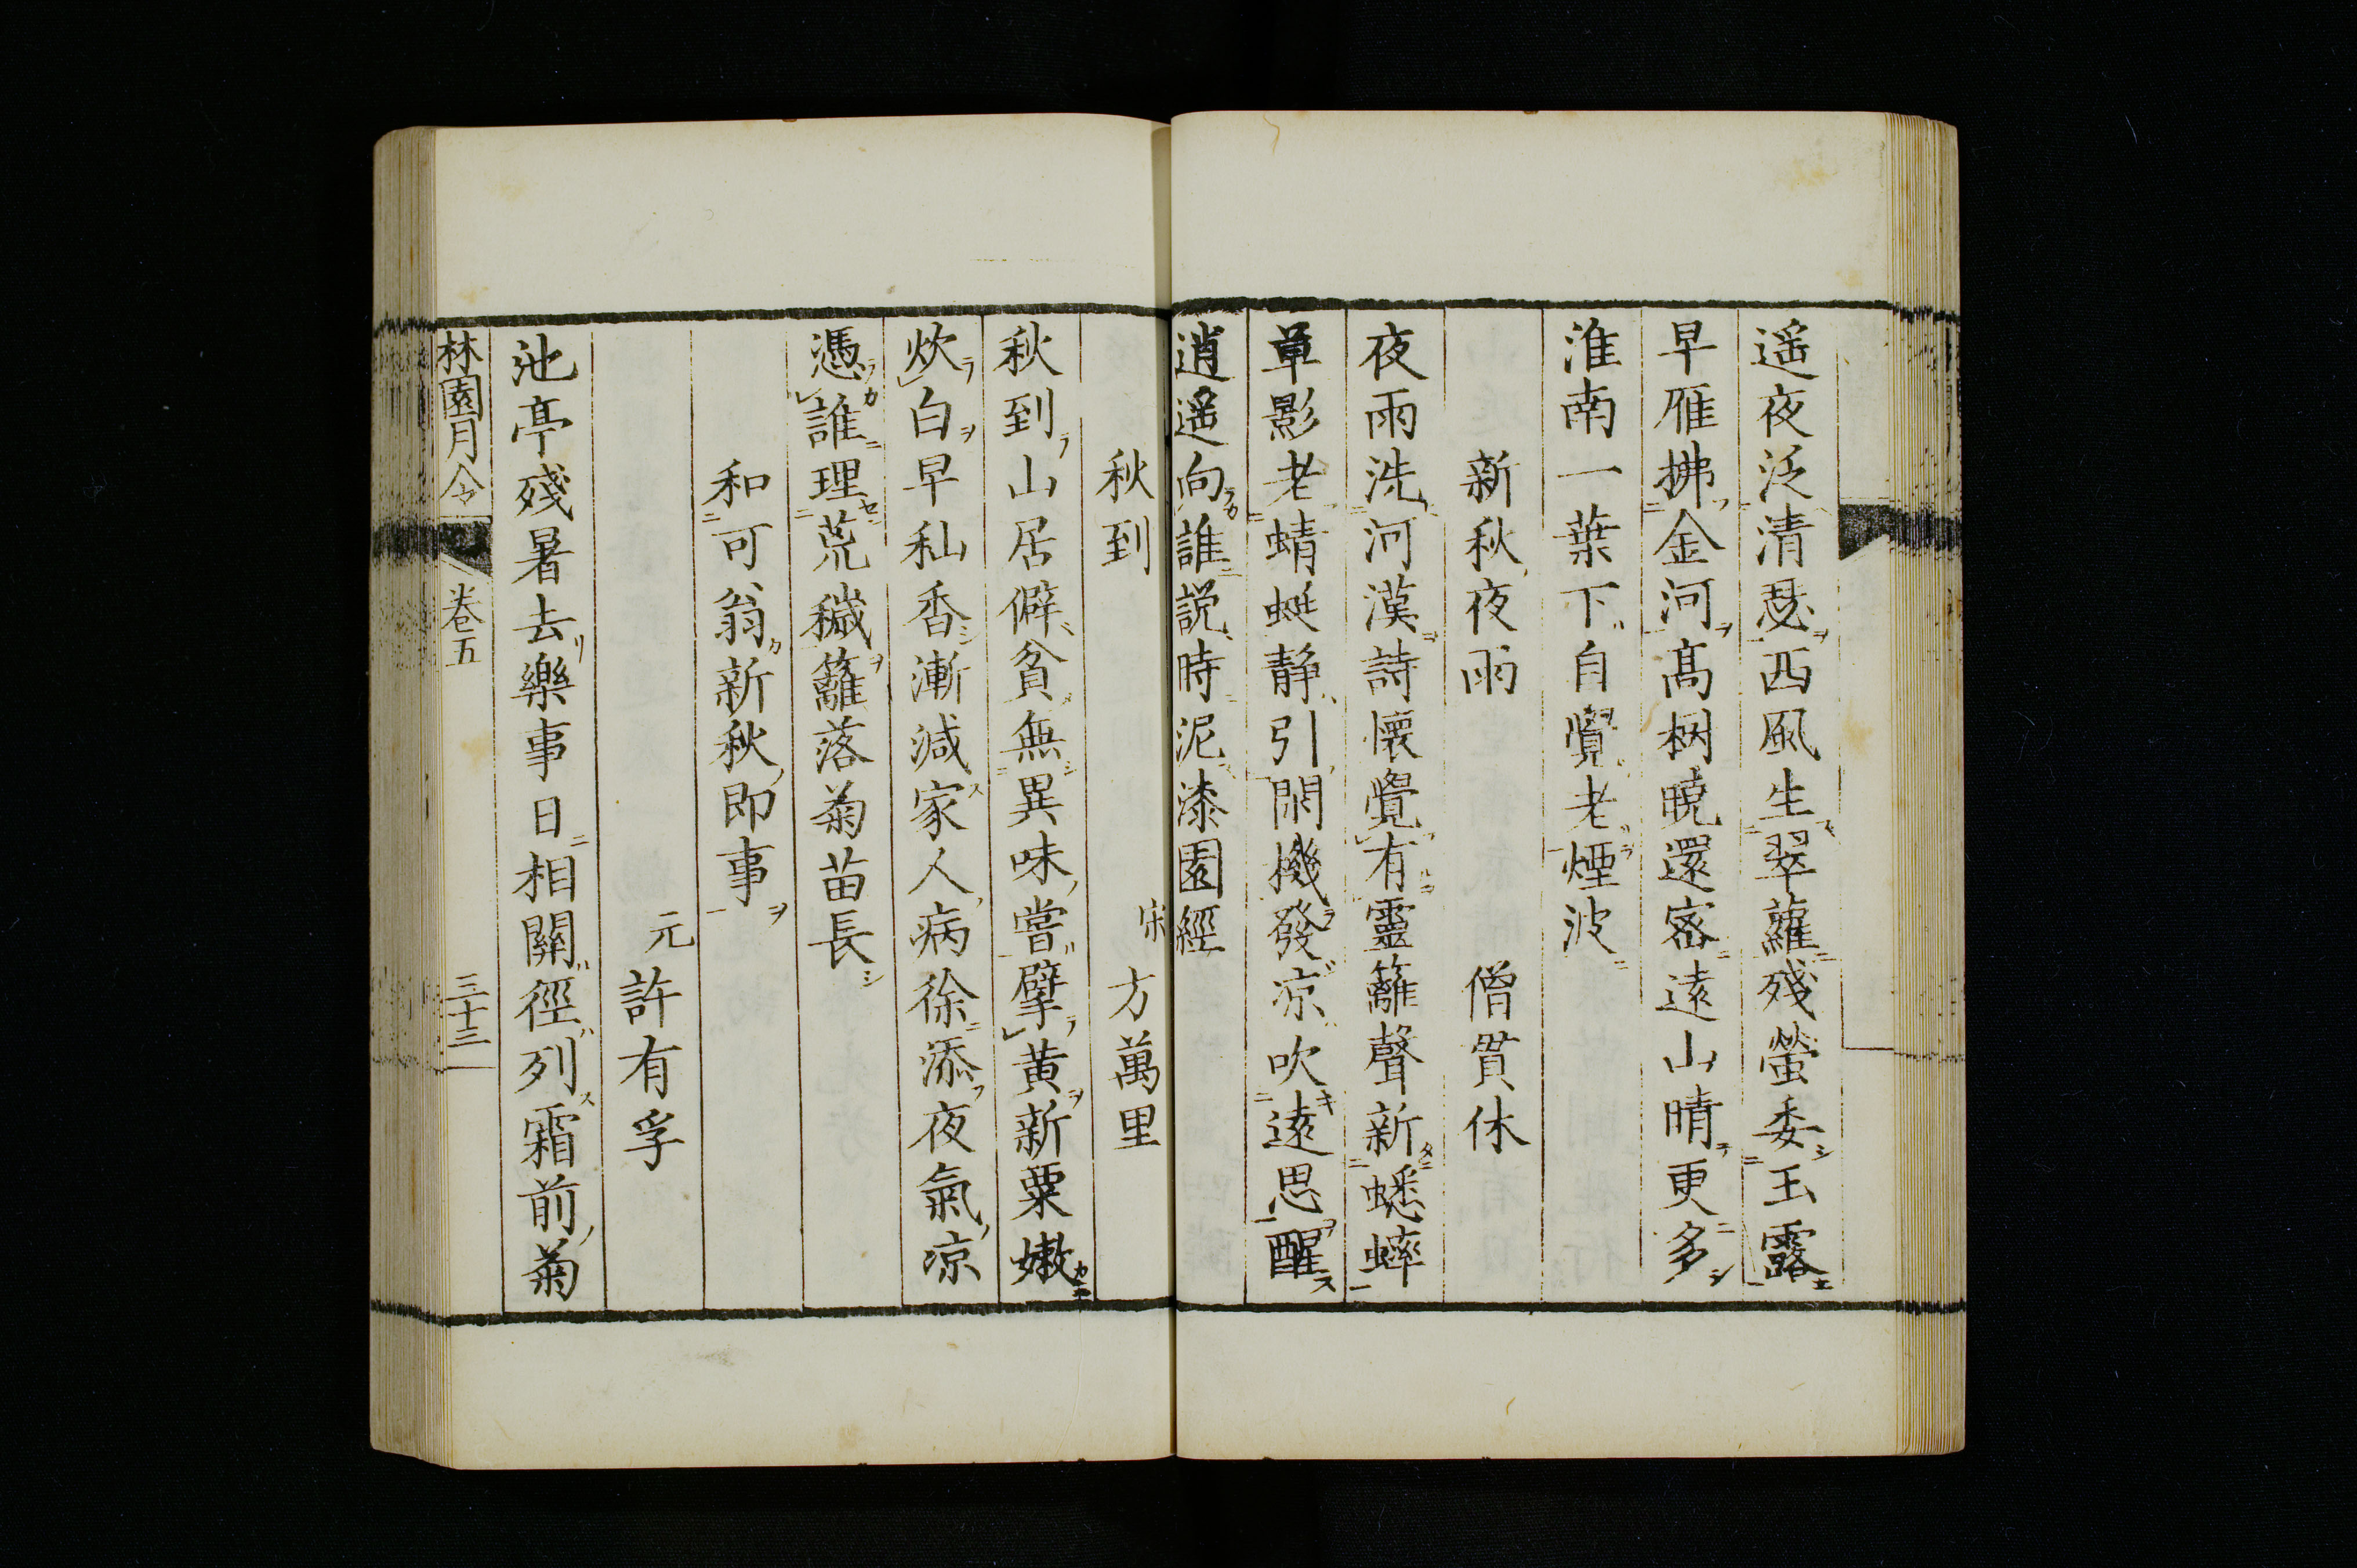 遥夜泛清瑟西風生翠蘿殘螢委玉露
早雁拂金河高柯曉還密遠山晴更多
淮南一葉下自覺老煙波
新秋夜雨　僧貫休
夜雨洗河漢詩懷覺有靈籬聲新蟋蟀
草影老蜻蜓静引閑機發凉吹遠思醒
逍遥向誰説時泥漆園經
秋到　宋方萬里
秋到山居僻貧無異味嘗擘黄新粟嫩
炊白早秈香漸減家人病徐添夜氣凉
憑誰理荒穢籬落菊苗長
和可翁新秋即事
元許有孚
池亭殘暑去樂事日相關徑列霜前菊
林園月令　卷五　三十三